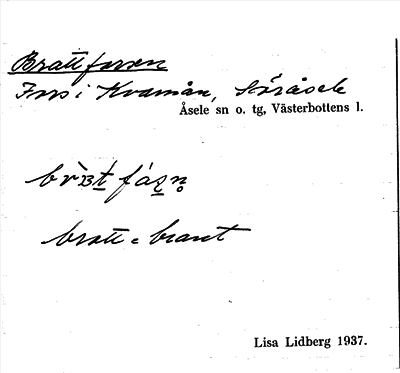 Brattforsen
Fors i Kvarnån, Söråsele
Åsele sn o. tg, Västerbottens l.
bratt = brant
Lisa Lidberg 1937.